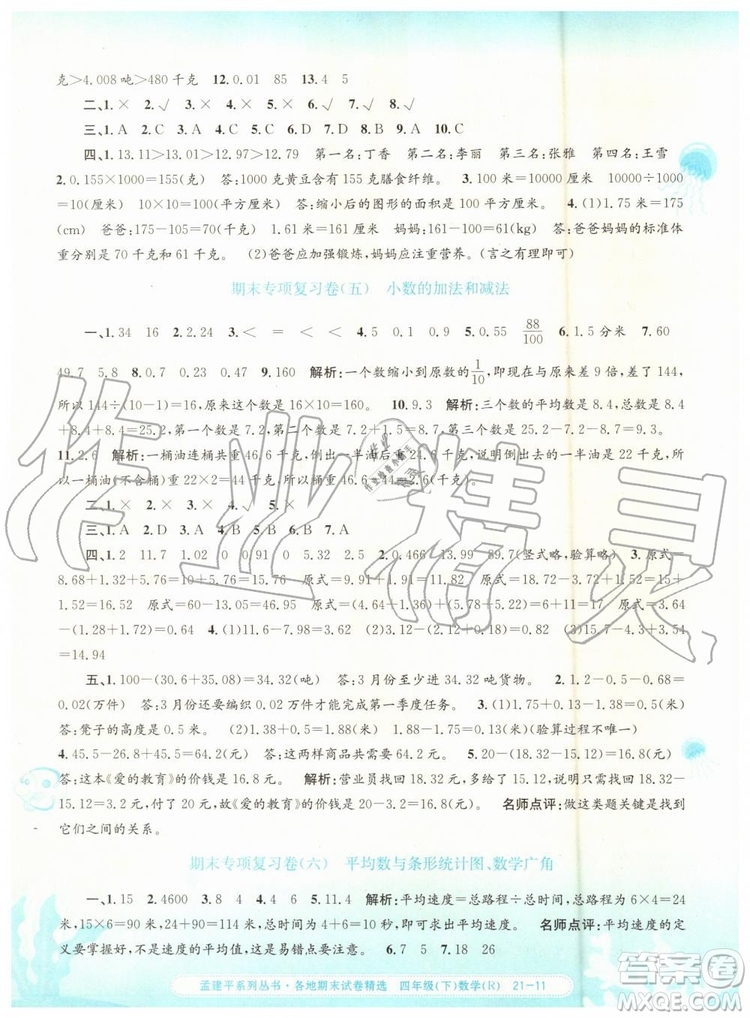 克>4.008吨>480千克 12.0.01 85 13.4 5
二、1.× 2.√ 3.× 4.√ 5.× 6.√ 7.√
三、1.A 2.C 3.A 4.B 5.C 6.B 7.D 8.A 9.C 10.C
四、1.13.11>12.96>12.91>12.79 第一名:丁香 第二名:李丽 第三名:张雅 第四名:王雪
2.0.155×1000=155(克) 答:1000克黄豆含有155克膳食纤维。 3.100米=10000厘米 10000÷1000
=10(厘米) 10×10=100(平方厘米) 答:缩小后的图形的面积是100平方厘米。 4.(1)1.75米=175
(cm) 爸爸:175-105=70(千克) 1.61米=161(cm) 妈妈:161-100=61(kg) 答:爸爸妈妈的标准体
重分别是70千克和61千克。 (2)爸爸应加强锻炼,妈妈应注重营养。(言之有理即可)
期末专项复习卷(五) 小数的加法和减法
一、1.34 16 2.2.24 3.< = < < 4.5 0.1 0.9 5.0.55 88/100 6.1.5分米 7.60
49.7 5.8 8.0.7 0.23 0.23 0.47 9.160 解析:一个数缩小到原数的1/10,即现在比原来差了144,
所以144÷(10-1)=16,原来这个数是16×10=160。 10.9.3 解析:三个数的平均数是8.4,总数是
8.4+8.4+8.4=25.2,第一个数是9.2,第二个数比第一个数少2.5,所以第三个数=25.2-9.2-6.7=9.3。
11.2.6 解析:一桶油连桶共重46.6千克,倒出一半油后重24.6千克,倒出的一半油是46.6-24.6=22(千
克),一桶油(不含桶)重22×2=44(千克),桶重46.6-44=2.6(千克)。
二、1.× 2.√ 3.× 4.× 5.√
三、1.D 2.A 3.D 4.C 5.B 6.B 7.A
四、1.2 11.7 1.02 0.91 0 5.2 2.0.466 13.99 89.7(竖式略,验算略) 3.原式=
8.68-(4.4+2.6)=1.68 原式=12.89-0.89+8.5=20.5 原式=9.6+0.4-3.36=6.64 原式=3.64
-(1.28+1.72)=0.64 4.(1)11.6-7.98=3.62 (2)3.2-(1.32+0.68)=1.2 (3)18.14-(1.28+1.92)
=14.94
五、1.100-(30.6+35.08)=34.32(吨) 答:3月份至少进34吨货物。 2.1.2-0.5-0.68=
0.02(万件) 答:3月份还要编织0.02万件才能完成第一季度任务。 3.1.65-(2-0.85)=0.5(米)
答:凳子的高度是0.5米。 1.65-0.5=1.15(米) 2-1.15=0.85(米)(验算过程可不写)
4.45.5-26.8+45.5=64.2(元) 答:这两样商品共要花64.2元。 5.20-(18.32-15.12)=16.8(元)
答:这本《爱的教育》的价钱是16.8元。 解析:营业员找回18.32元,实际花了15.12元,多找了18.32-
15.12=3.2(元),付了20元,故《爱的教育》的价钱是20-3.2=16.8(元)。 名师点评:做这类题关键是找到
它们之间的关系。
期末专项复习卷(六) 平均数与条形统计图、数学广角
一、1.15 2.4600 3.2 4.8 5.11.4 解析:平均速度=总路程÷总时间,总路程为6×4=24
米,15×6=90米,24+90=114米,总时间为4+6=10秒,平均速度为114÷10=11.4米。 名师点评:平均速度的定
义要掌握好,不是速度的平均值,这是易错点要注意。 6.7 5 7.18 26
孟建平系列丛书·各地期末试卷精选 四年级(下)数学(R) 21-11
作业精灵
答案圈